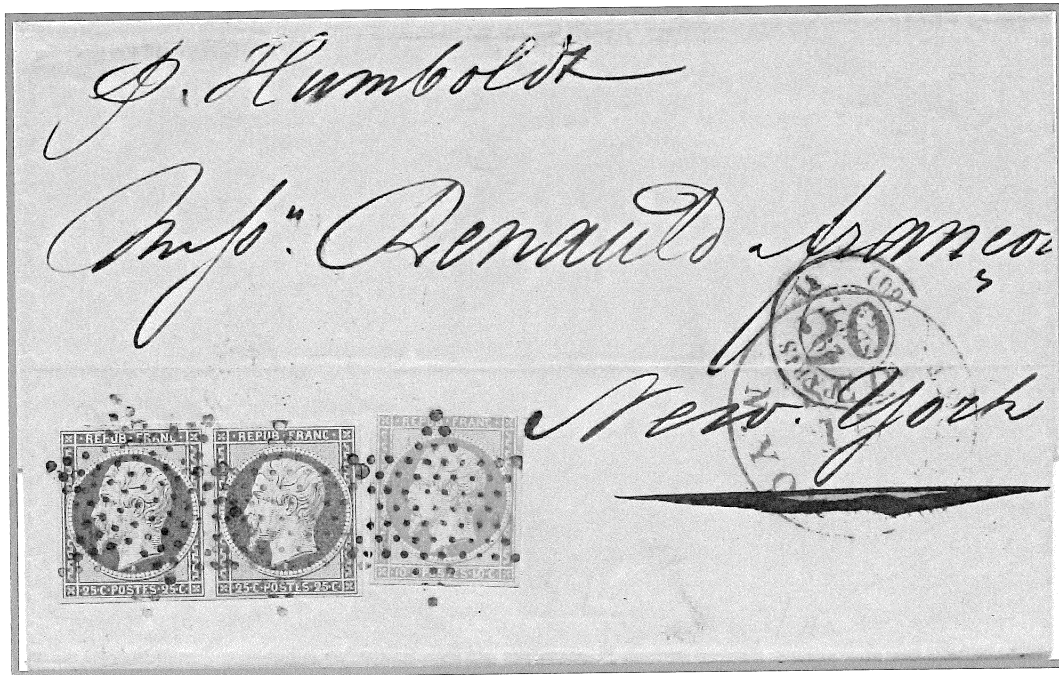 p. Humboldt
Mess.rs Renauld François
New-York
20
(60)
REPUB·FRANC·
25·C·POSTES·25·C·
REPUB·FRANC·
25·C·POSTES·25·C·